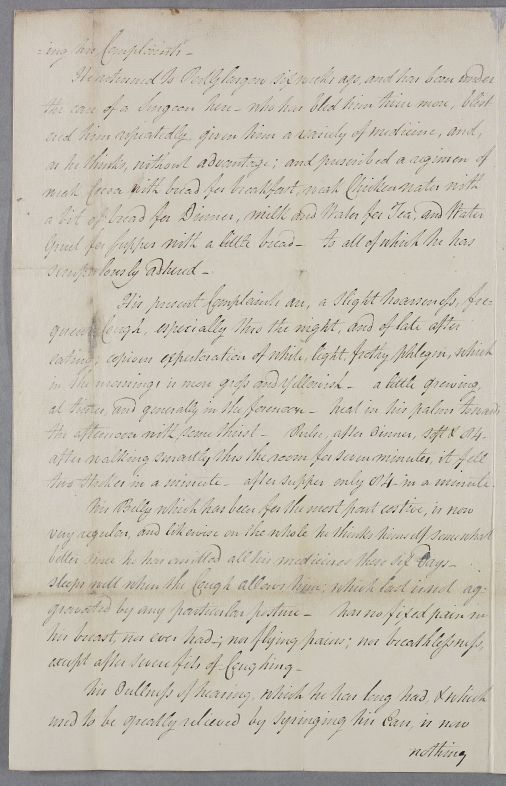 =ing his Complaints –
He returned to Port Glasgow six weeks ago, and has been under
the care of a Surgeon here – who has bled him time more, blist
ered him repeatedly, given him a variety of medicine, and,
as he thinks, without advantage; and prescribed a regimen of
weak Cocoa with bread for breakfast, weak Chicken water with
a bit of bread for Dinner, milk and Water for Tea, and Water
Gruel for supper with a little bread – to all of which he has
scrupulously adhered –
His present Complaints are, a slight hoarseness, fre=
quent Cough, especially thro the night, and of late after
eating; copious expectoration of white, light, frothy phlegm, which
in the mornings is more gross and yellowish – a little
at times, and generally in the forenoon – heat in his palms towards
the afternoon with some thirst – Pulse, after Dinner, soft & 84 –
after walking smartly thro the room for seven minutes, it fell
two strokes in a minute – after supper only 84 in a minute.
His Belly which has been for the most part costive, is now
very regular, and likewise on the whole he thinks himself somewhat
better since he has omitted all his medicines these six Days –
sleeps well when the Cough allows him; which last is not ag=
gravated by any particular posture – has no fixed pain in
his breast, nor ever had –; nor flying pains; nor breathlessness,
except after severe fits of Coughing –
His Dullness of hearing, which he has long had, & which
used to be greatly relieved by syringing his Ears, is now
nothing